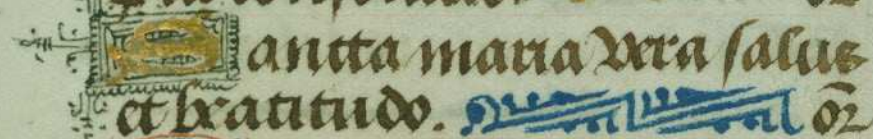 Sancta maria vera salus
et beatitudo. or̄